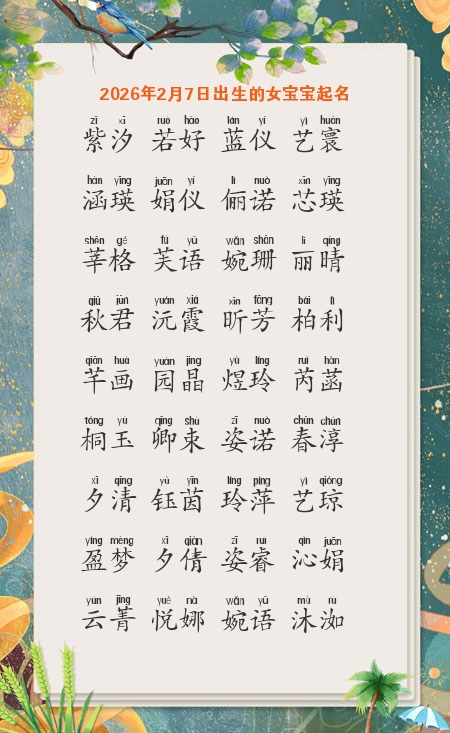 2026年2月7日出生的女宝宝起名
zǐ xī ruò hǎo lán yí yì huán
紫汐 若好 蓝仪 艺寰
hán yīng juān yí lì nuò xīn yīng
涵瑛 娟仪 俪诺 芯瑛
shēn gé fú yǔ wǎn shān lì qíng
莘格 芙语 婉珊 丽晴
qiū jūn yuán xiá xīn fāng bǎi lì
秋君 沅霞 昕芳 柏利
qiān huà yuán jīng yù líng ruì hàn
芊画 园晶 煜玲 芮菡
tóng yù qīng shù zī nuò chūn chún
桐玉 卿束 姿诺 春淳
xī qīng yù yīn líng píng yì qióng
夕清 钰茵 玲萍 艺琼
yíng mèng xī qiàn zī ruì qìn juān
盈梦 夕倩 姿睿 沁娟
yún jīng yuè nà wǎn yǔ mù rù
云菁 悦娜 婉语 沐洳